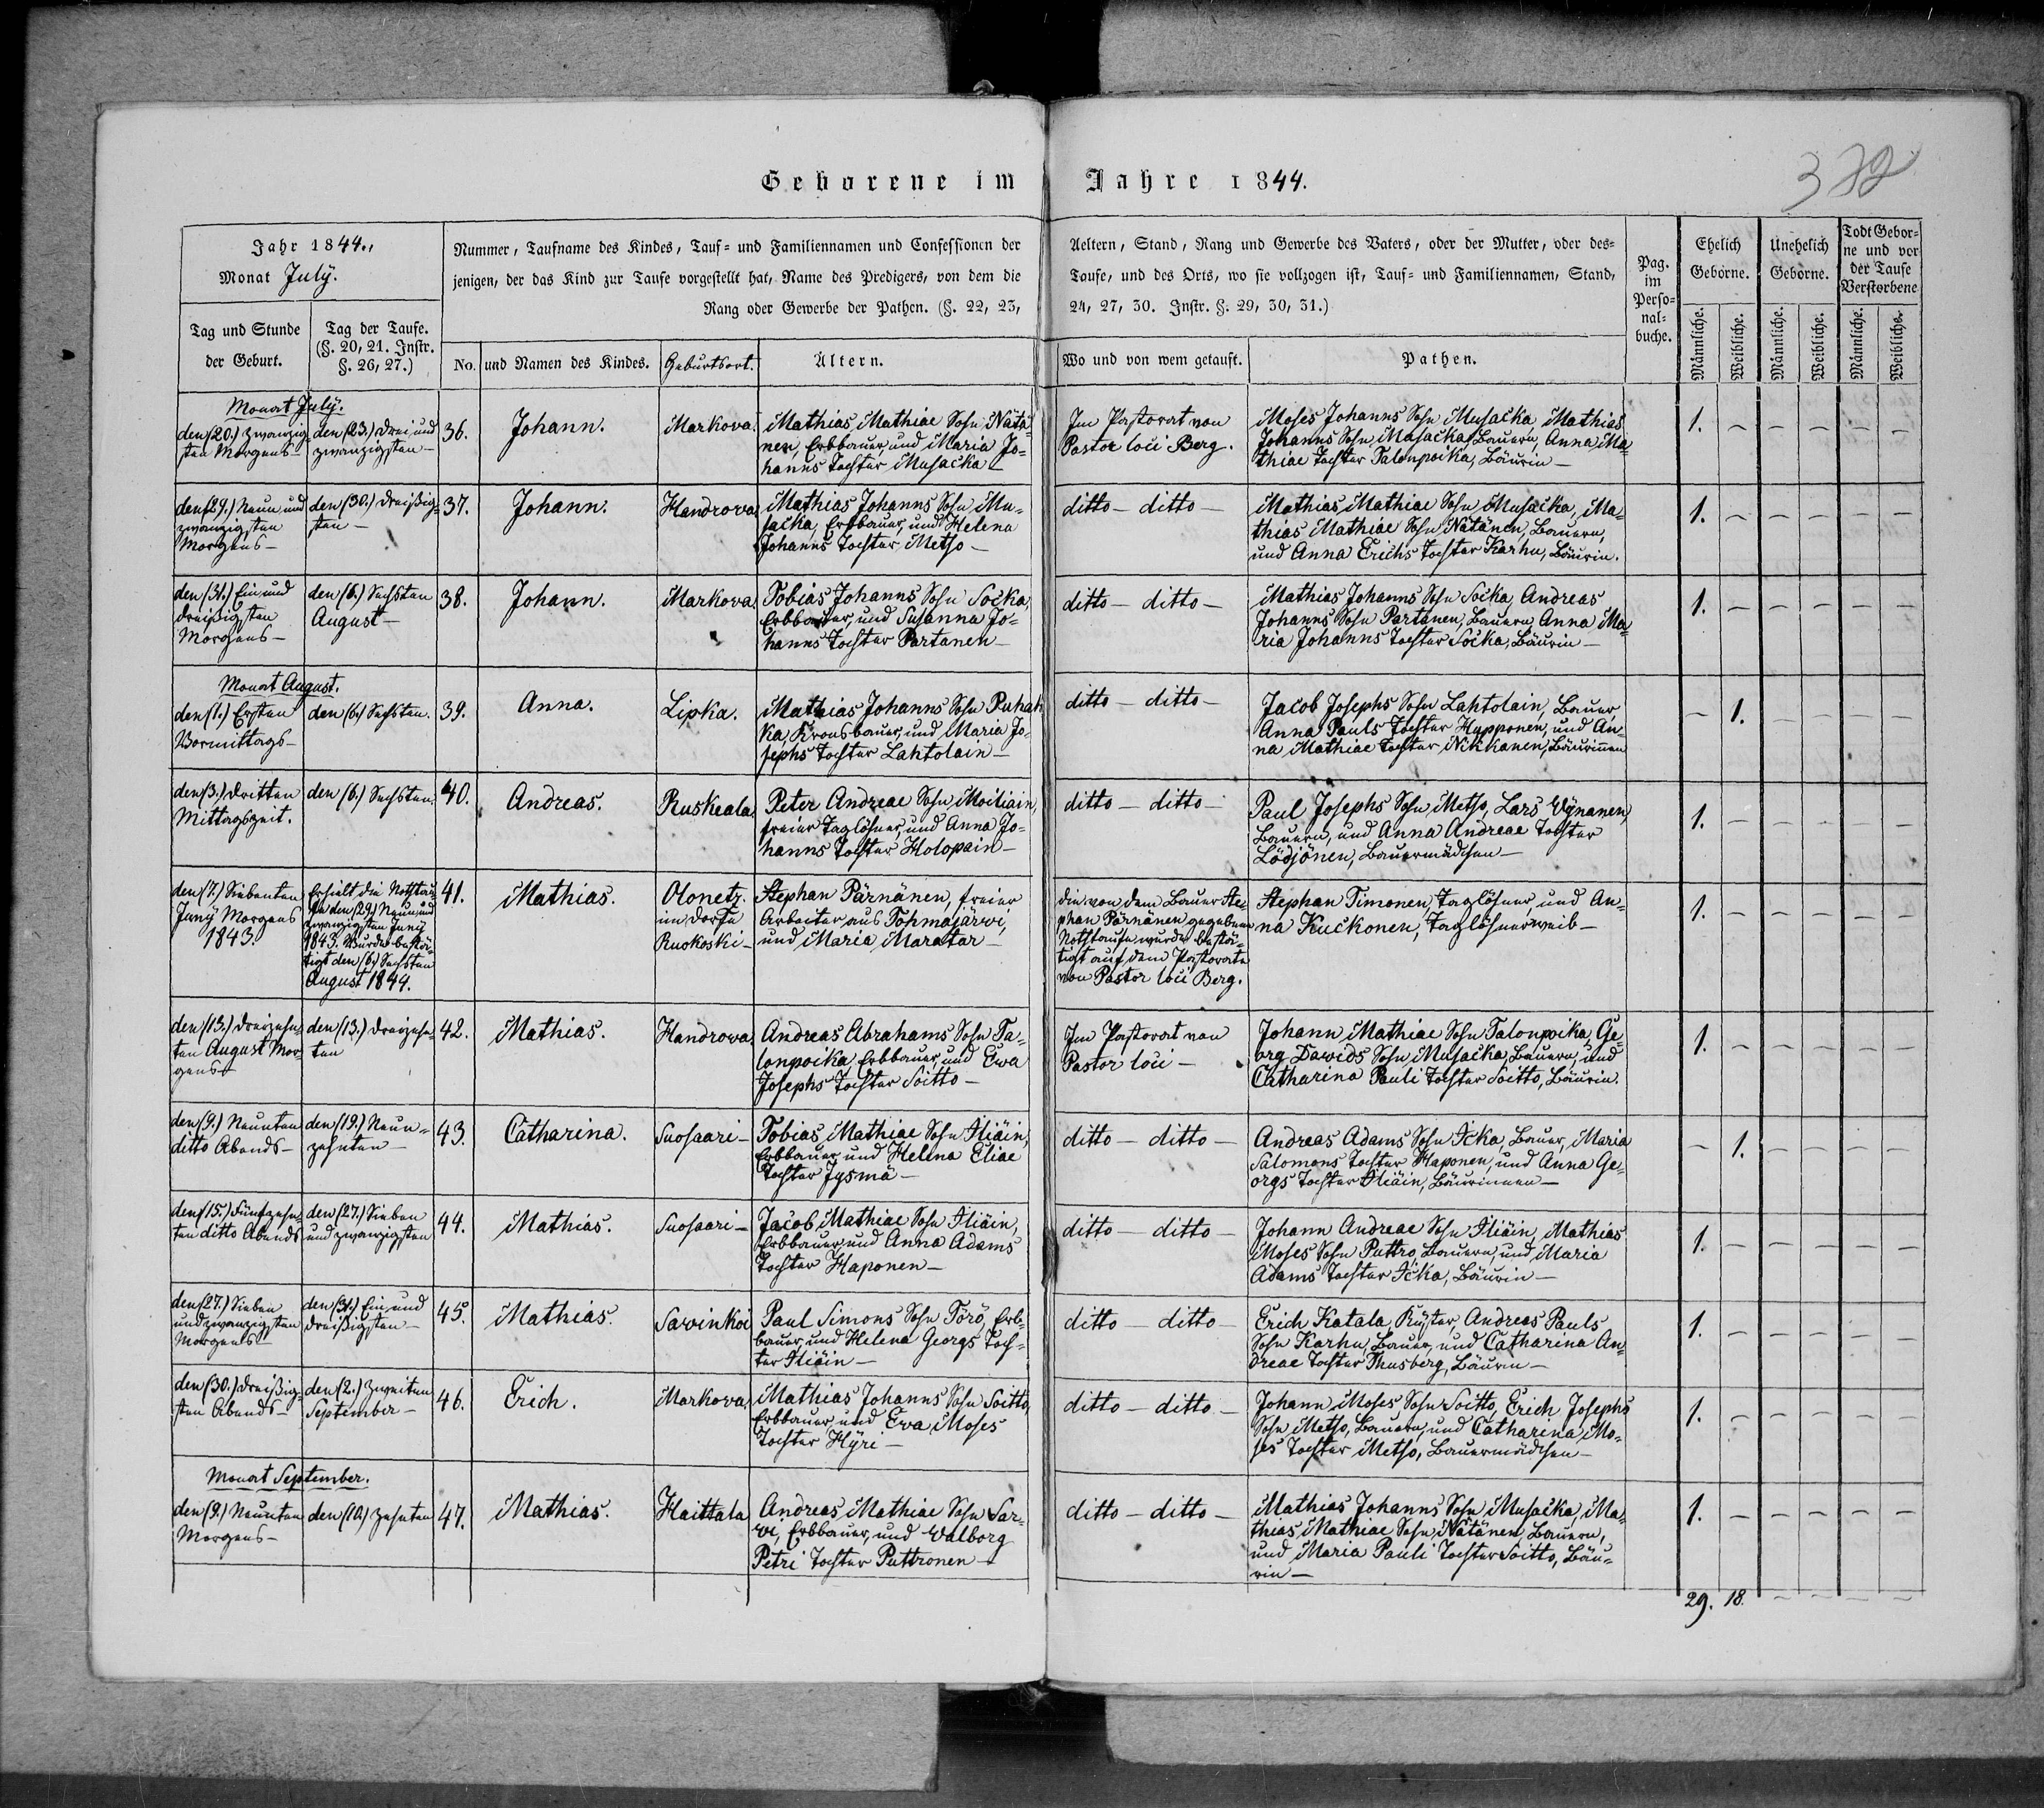 Geborene im Jahre 1844.
372
Jahr 1844.,
Monat July.
Tag und Stunde
der Geburt.
Tag der Taufe.
(§. 20, 21. Instr.
§. 26, 27.)
Nummer, Taufname des Kindes, Tauf- und Familiennamen und Confessionen der
jenigen, der das Kind zur Taufe vorgestellt hat, Name des Predigers, von dem die
Rang oder Gewerbe der Pathen. (§. 22, 23,
No.
und Namen des Kindes.
Geburtsort.
Ältern.
Aeltern, Stand, Rang und Gewerbe des Vaters, oder der Mutter, oder des-
Taufe, und des Orts, wo sie vollzogen ist, Tauf- und Familiennamen, Stand,
24, 27, 30. Instr. §. 29, 30, 31.)
Wo und von wem getauft.
Pathen.
Pag.
im
Perso-
nal-
buche.
Ehelich
Geborne.
Unehelich
Geborne.
Todt Gebor-
ne und vor
der Taufe
Verstorbene
Männliche.
Weibliche.
Männliche.
Weibliche.
Männliche.
Weibliche.
Monat July.
den (20.) zwanzig
sten Morgens –
den (23.) drei und
zwanzigsten –
36.
Johann.
Markova.
Mathias Mathiae Sohn Nätä-
nen, Erbbauer, und Maria Jo-
hanns Tochter Musacka –
Im Pastorat von
Pastor loci Berg.
Moses Johanns Sohn Musacka, Mathias
Johanns Sohn Musacka, Bauern, Anna Ma-
thiae Tochter Talonpoika, Bäurin –
1. – – – – –
den (29.) Neun und
zwanzigsten
Morgens –
den (30.) dreißig-
sten –
37.
Johann.
Handrova
Mathias Johanns Sohn Mu-
sacka, Erbbauer, und Helena
Johanns Tochter Metso –
ditto – ditto –
Mathias Mathiae Sohn Musacka, Ma-
thias Mathiae Sohn Nätänen, Bauern,
und Anna Erichs Tochter Karhu, Bäurin.
1. – – – – –
den (31.) Ein und
dreißigsten
Morgens –
den (6.) Sechsten
August –
38.
Johann.
Markova.
Tobias Johanns Sohn Socka,
Erbbauer, und Susanna Jo-
hanns Tochter Partanen –
ditto – ditto –
Mathias Johanns Sohn Socka, Andreas
Johanns Sohn Partanen, Bauern, Anna Ma-
ria Johanns Tochter Socka, Bäurin –
1. – – – – –
Monat August.
den (1.) Ersten
Vormittags –
den (6.) Sechsten.
39.
Anna.
Lipka.
Mathias Johanns Sohn Puhak
ka, Kronsbauer, und Maria Jo-
sephs Tochter Lahtolain –
ditto – ditto –
Jacob Josephs Sohn Lahtolain, Bauer,
Anna Pauls Tochter Hypponen, und An-
na Mathiae Tochter Nikkanen, Bäurinnen
– 1. – – – –
den (3.) dritten
Mittagszeit.
den (6.) Sechsten.
40.
Andreas.
Ruskeala.
Peter Andreae Sohn Moiliain,
freier Taglöhner, und Anna Jo-
hanns Tochter Holopain –
ditto – ditto –
Paul Josephs Sohn Metso, Lars Wÿnanen,
Bauern, und Anna Andreae Tochter
Lödjönen, Bauermädchen –
1. – – – – –
den (7.) Siebenten
Juny Morgens
1843.
Erhielt die Nothtau-
fe den (29.) Neun und
zwanzigsten Juny
1843. Wurde bestä-
tigt den (6.) Sechsten
August 1844.
41.
Mathias.
Olonetz.
im Dorfe
Ruskoski –
Stephan Pärnänen, freier
Arbeiter aus Tohmajärwi,
und Maria Maratar –
die von dem Bauer Ste-
phan Pärnänen gegebene
Nothtaufe wurde bestä-
tigt auf dem Pastorate
von Pastor loci Berg.
Stephan Timonen, Taglöhner, und An-
na Kuckonen, Taglöhnerweib –
1. – – – – –
den (13.) dreizehn-
ten August Mor-
gens –
den (13.) dreizehn-
ten
42.
Mathias.
Handrowa.
Andreas Abrahams Sohn Ta-
lonpoika, Erbbauer, und Ewa
Josephs Tochter Soitto –
Im Pastorat von
Pastor loci –
Johann Mathiae Sohn Talonpoika, Ge-
org Dawids Sohn Musacka, Bauern, und
Catharina Pauli Tochter Soitto, Bäurin.
1. – – – – –
den (9.) Neunten
ditto Abends –
den (19.) Neun-
zehnten –
43.
Catharina.
Suosaari –
Tobias Mathiae Sohn Iliäin,
Erbbauer, und Helena Eliae
Tochter Jysmä –
ditto – ditto –
Andreas Adams Sohn Icka, Bauer, Maria
Salomons Tochter Haponen, und Anna Ge-
orgs Tochter Iliäin, Bäurinnen –
– 1. – – – –
den (15.) Fünfzehn-
ten ditto Abends
den (27.) Sieben
und zwanzigsten
44.
Mathias.
Suosaari –
Jacob Mathiae Sohn Iliäin,
Erbbauer, und Anna Adams
Tochter Haponen –
ditto – ditto –
Johann Andreae Sohn Iliäin, Mathias
Moses Sohn Puttro, Bauern, und Maria
Adams Tochter Icka, Bäurin –
1. – – – – –
den (27.) Sieben
und zwanzigsten
Morgens –
den (31.) Ein und
dreißigsten –
45.
Mathias.
Savinkoi
Paul Simons Sohn Törö, Erb-
bauer, und Helena Georgs Toch-
ter Iliäin –
ditto – ditto –
Erich Katala, Küster, Andreas Pauls
Sohn Karhu, Bauer, und Catharina An-
dreae Tochter Thusberg, Bäurin –
1. – – – – –
den (30.) dreißig-
sten Abends –
den (2.) Zweiten
September –
46.
Erich.
Markova.
Mathias Johanns Sohn Soitto,
Erbbauer, und Eva Moses
Tochter Hÿri –
ditto – ditto –
Johann Moses Sohn Soitto, Erich Josephs
Sohn Metso, Bauern, und Catharina Mo-
ses Tochter Metso, Bauermädchen –
1. – – – – –
Monat September.
den (9.) Neunten
Morgens –
den (10.) Zehnten
47.
Mathias.
Haittala
Andreas Mathiae Sohn Sar-
vi, Erbbauer, und Walborg
Petri Tochter Puttronen –
ditto – ditto –
Mathias Johanns Sohn Musacka, Ma-
thias Mathiae Sohn Nätänen, Bauern,
und Maria Pauli Tochter Soitto, Bäu-
rin –
1. – – – – –
29. 18. – – – –